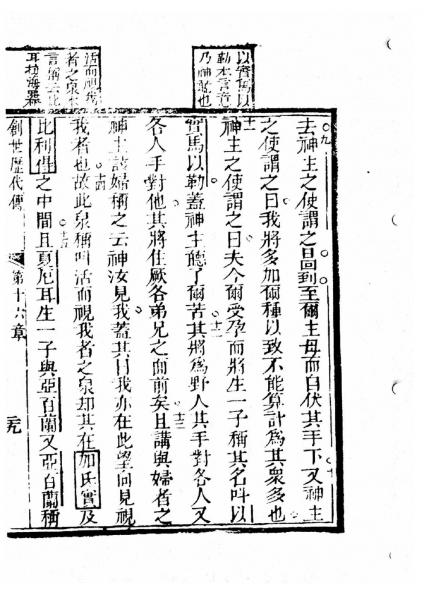 以實馬以
勒本言意
乃神聽也
活而視我
者之泉本
言猶云比
耳拉海羅
去神主之使謂之曰回到至爾主母而自伏其手下又神主
之使謂之曰我將多加爾種以致不能算計為其眾多也
神主之使謂之曰夫今爾受孕而將生一子稱其名叫以
實馬以勒蓋神主聽了爾苦其將為野人其手對各人又
各人手對他其將住厥各弟兄之面前矣且講與婦者之
神主該婦稱之云神汝見我蓋其曰我亦在此望向見視
我者也故此泉稱叫活而視我者之泉却其在加氏實及
比利得之中間且夏厄耳生一子與亞百蘭又亞百蘭稱
創世歷代傳 第十六章